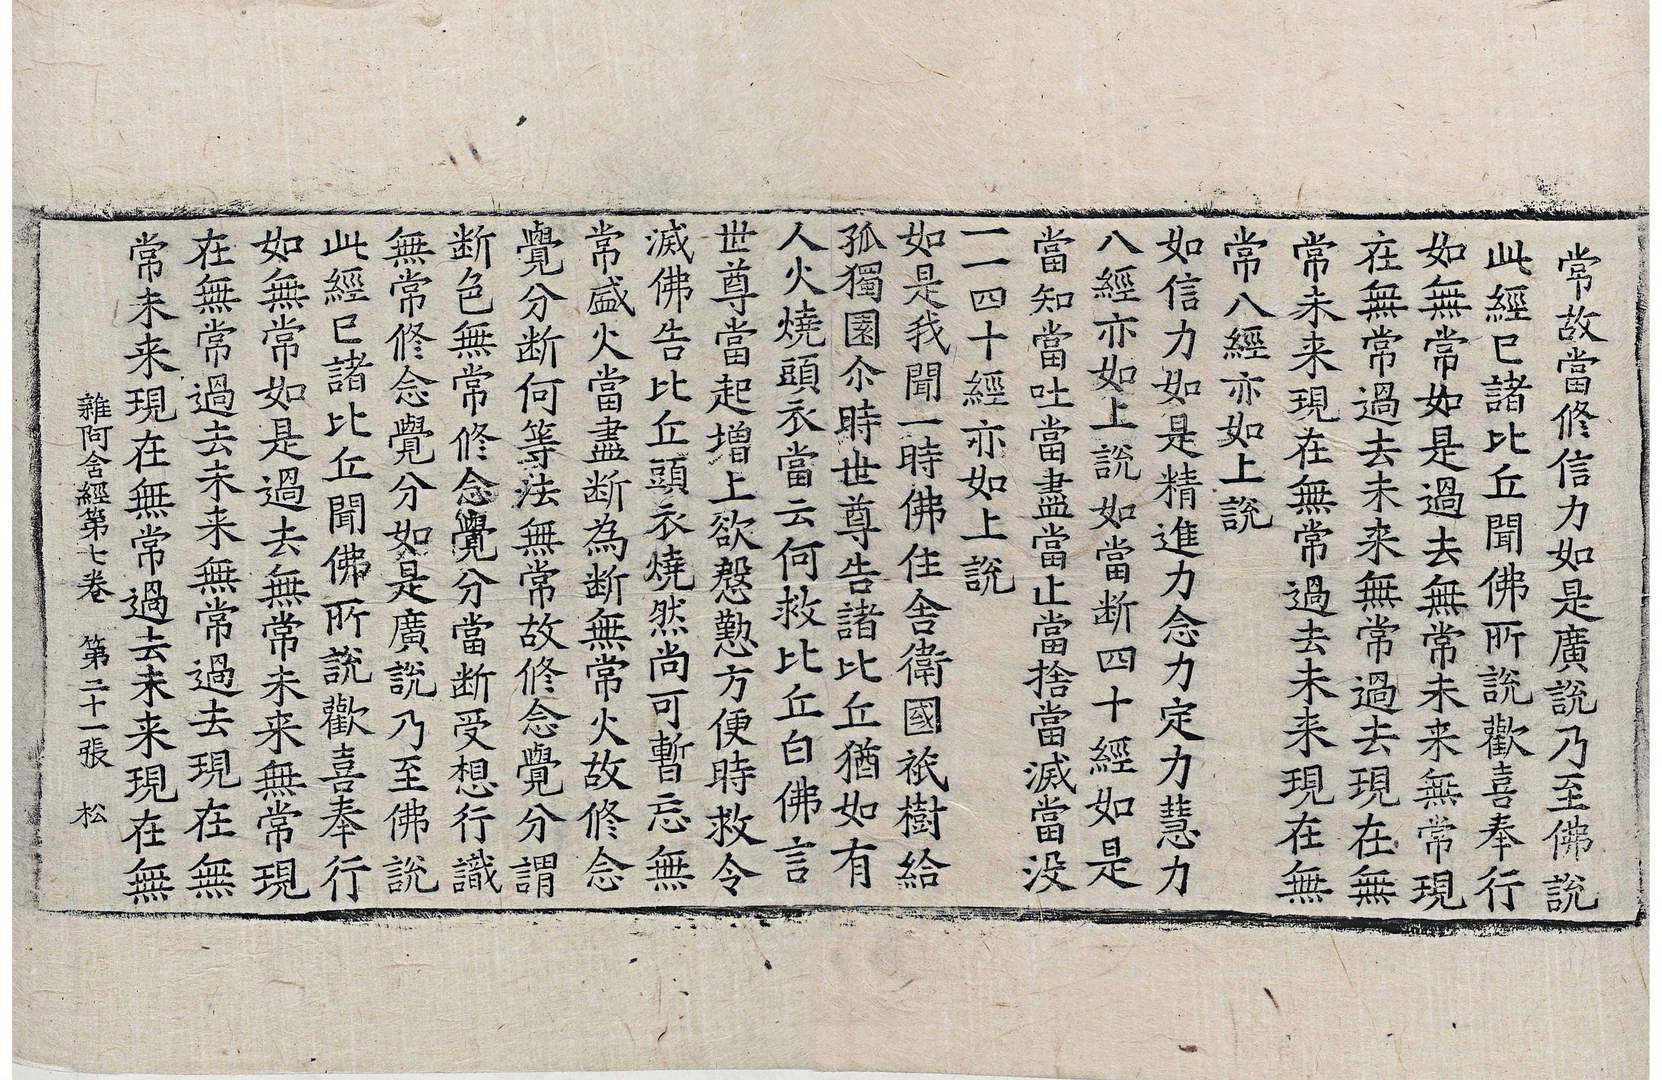 常故當修信力如是廣說乃至佛說
此經已諸比丘聞佛所說歡喜奉行
如無常如是過去無常未来無常現
在無常過去未来無常過去現在無
常未来現在無常過去未来現在無
常八經亦如上說
如信力如是精進力念力定力慧力
八經亦如上說如當断四十經如是
當知當吐當盡當止當捨當滅當没
一一四十經亦如上說
如是我聞一時佛住舍衛國祇樹給
孤獨園尒時世尊告諸比丘猶如有
人火燒頭衣當云何救比丘白佛言
世尊當起增上欲慇懃方便時救令
滅佛告比丘頭衣燒然尚可暫忘無
常盛火當盡断為断無常火故修念
覺分断何等法無常故修念覺分謂
断色無常修念覺分當断受想行識
無常修念覺分如是廣說乃至佛說
此經已諸比丘聞佛所說歡喜奉行
如無常如是過去無常未来無常現
在無常過去未来無常過去現在無
常未来現在無常過去未来現在無
雜阿含經第七卷　第二十一張　松